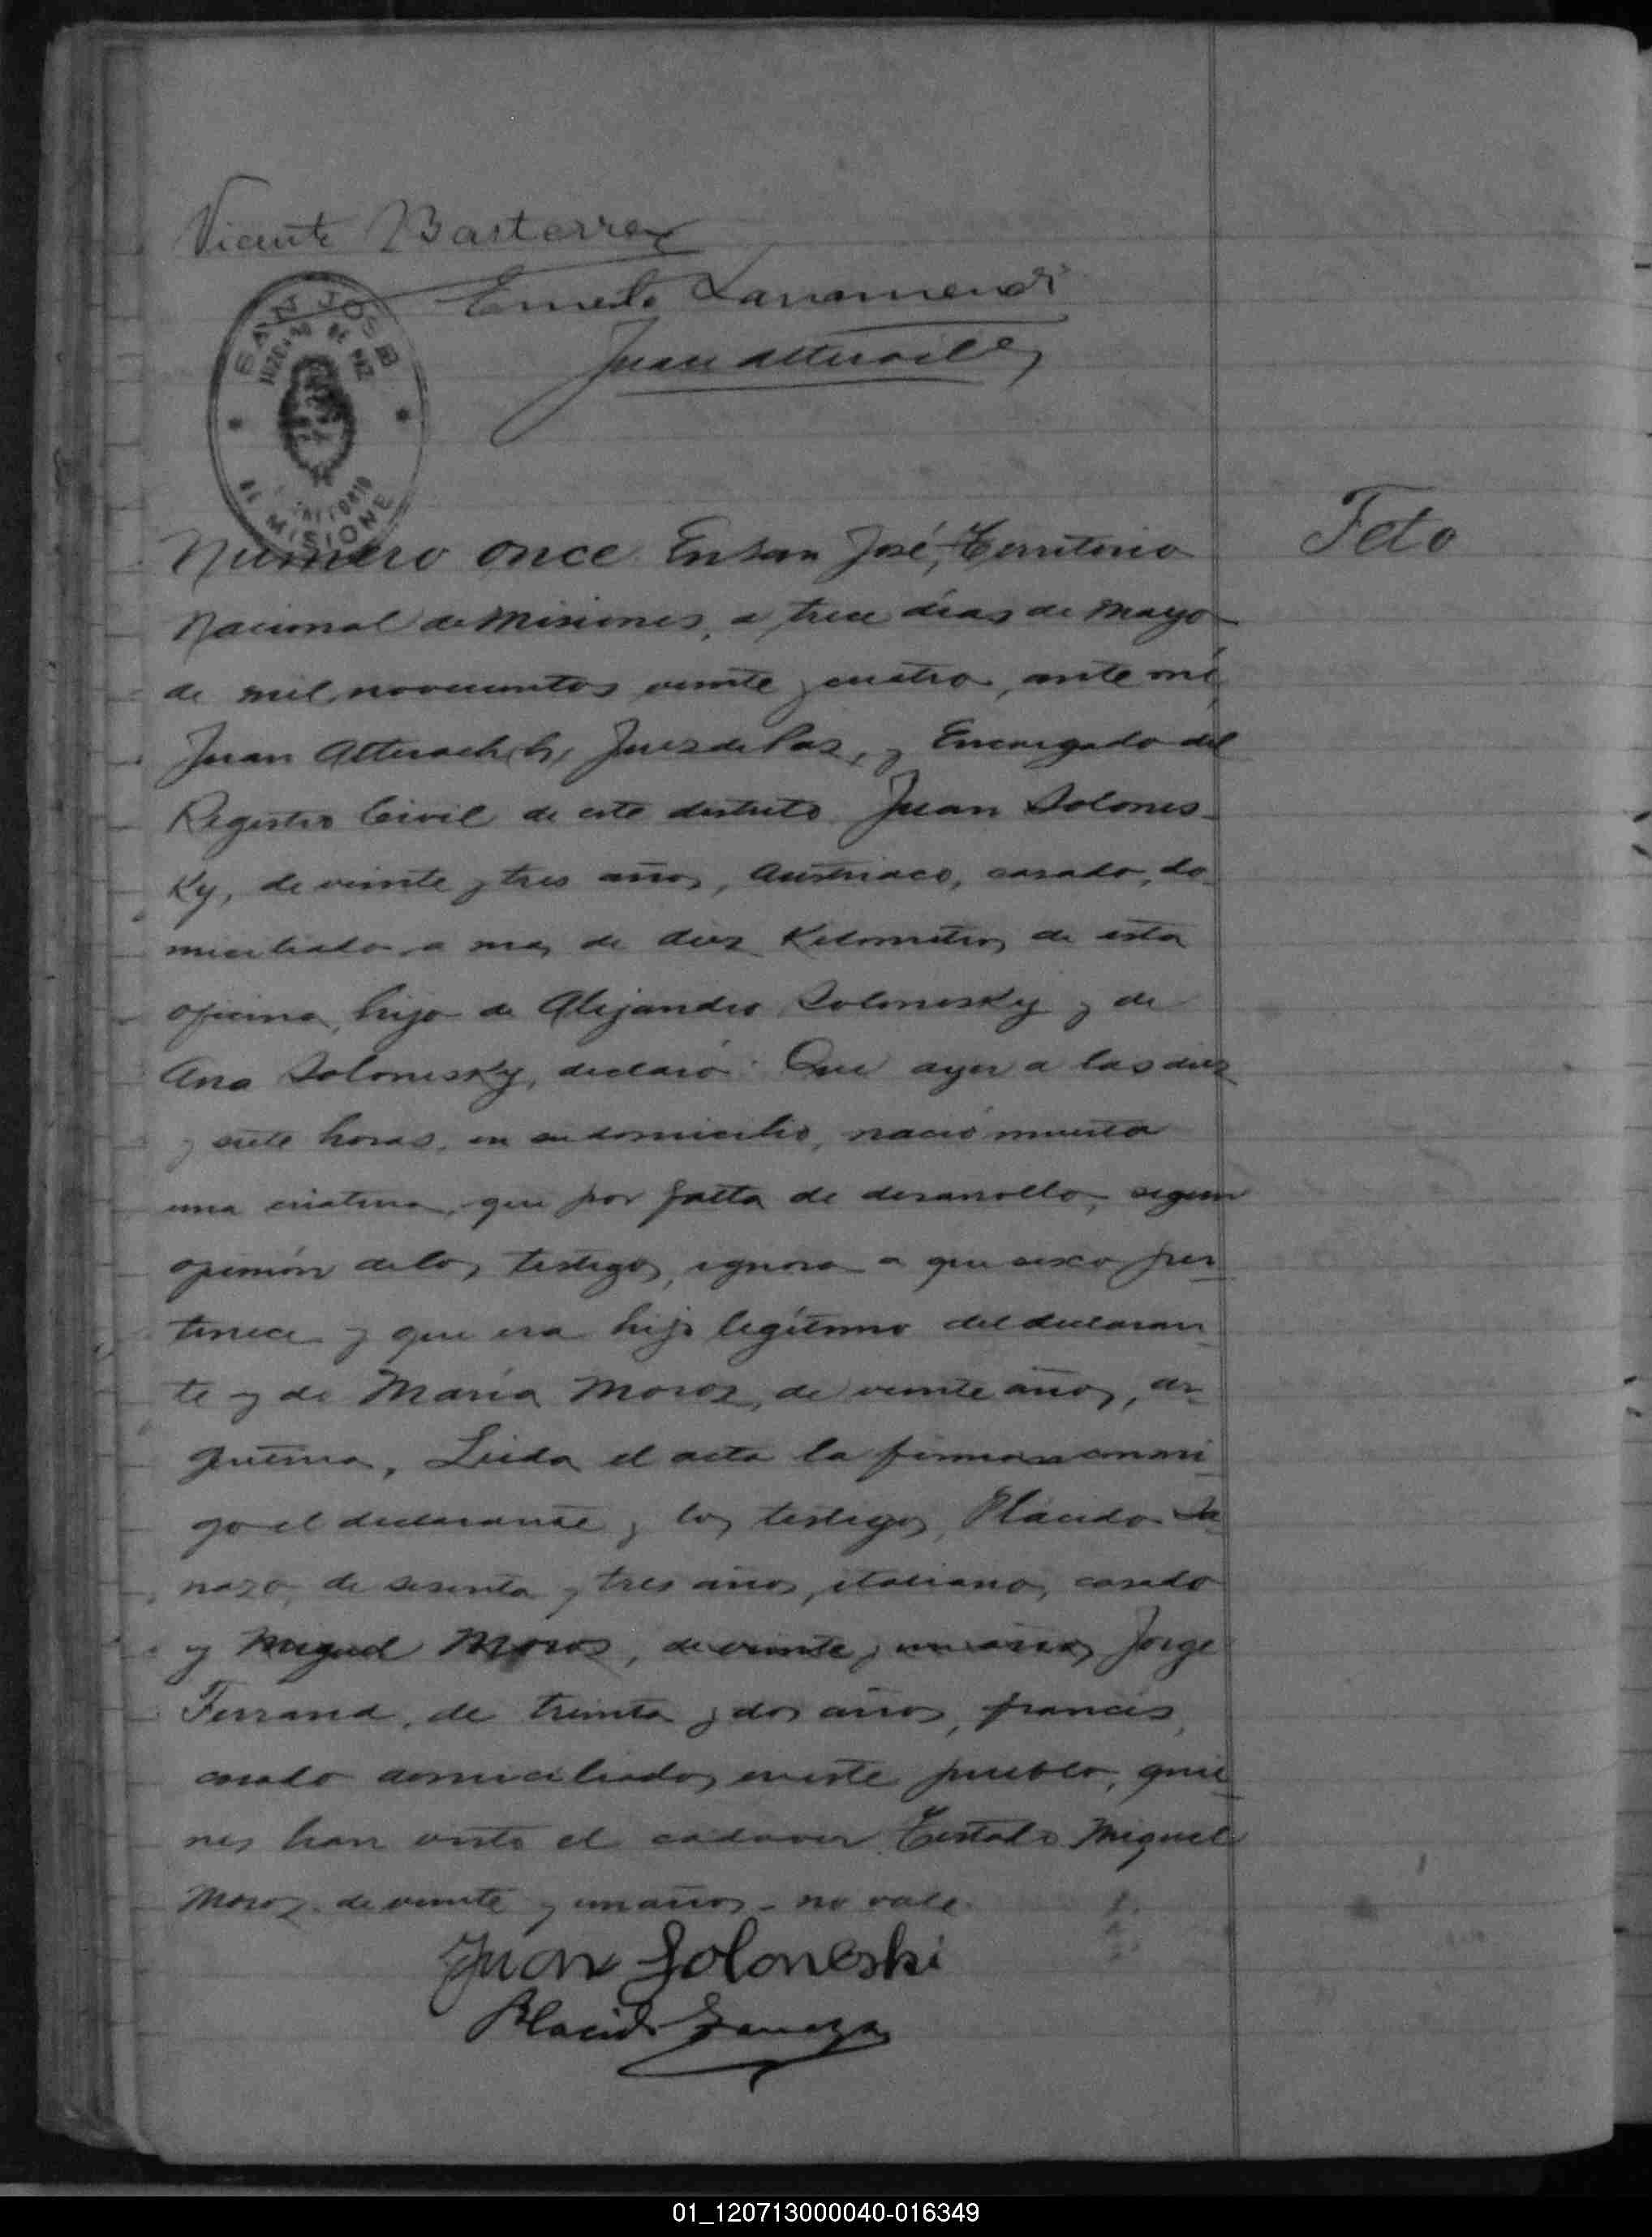 Vicente Basterrex
Ernesto Larramendi
Juan
SAN JOSE
JUZGADO DE PAZ
TERRITORIO
DE MISIONE
Feto
Número once En San José, Territorio
Nacional de Misiones, a trece días de Mayo
de mil novecientos veinte y cuatro, ante mí,
Juan Juez de Paz, y Encargado del
Registro Civil de este distrito Juan Solones-
Ky, de veinte y tres años, Austriaco, casado, do-
miciliado a mas de diez Kilometros de esta
oficina, hijo de Alejandro Solonesky y de
Ana Solonesky, declaró: Que ayer a las diez
y siete horas, en su domicilio, nació muerta
una criatura, que por falta de desarrollo, segun
opinión de los testigos, ignora a que sexo per-
tenece y que era hijo legítimo del declaran-
te y de María Moroz, de veinte años, ar-
gentina, Leida el acta la firmaron conmi-
go el declarante y los testigos, Plácido Za-
nazo, de sesenta y tres años, italiano, casado
y Miguel Moros, de veinte y un años, Jorge
Ferrand, de treinta y dos años, francés,
casado domiciliados en este pueblo, quie-
nes han visto el cadaver. Testado Miguel
Moroz de veinte y un años - no vale.
Juan Soloneski
Placido
01_120713000040-016349